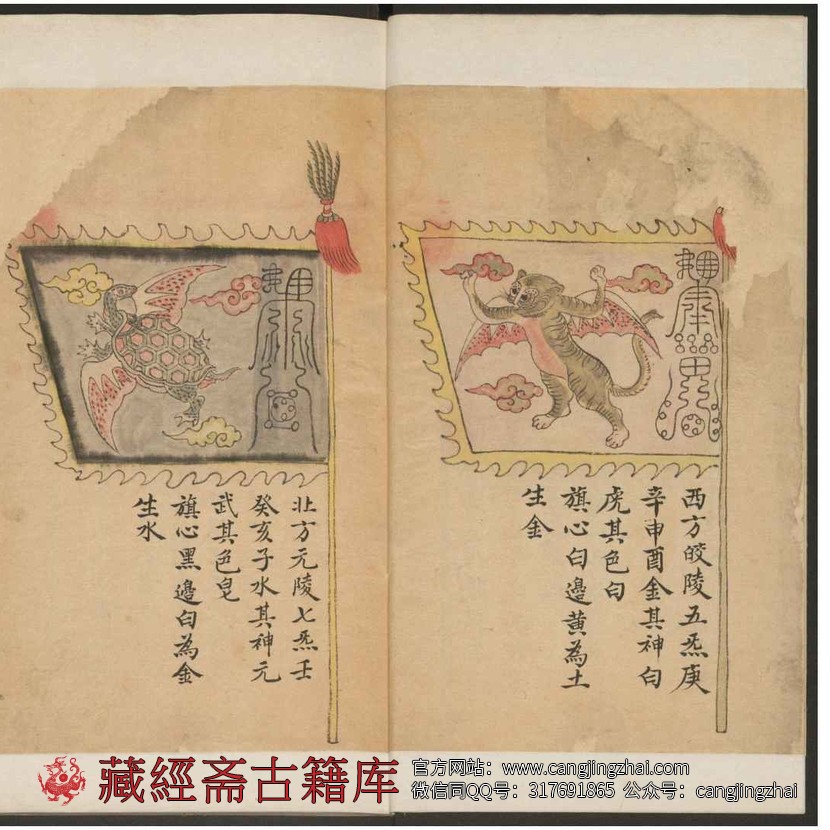 西方皎陵五炁庚
辛申酉金其神白
虎其色白
旗心白邊黄為土
生金
北方元陵七炁壬
癸亥子水其神元
武其色皂
旗心黑邊白為金
生水
藏經斋古籍库
官方网站：www.cangjingzhai.com
微信同QQ号：317691865 公众号：cangjingzhai